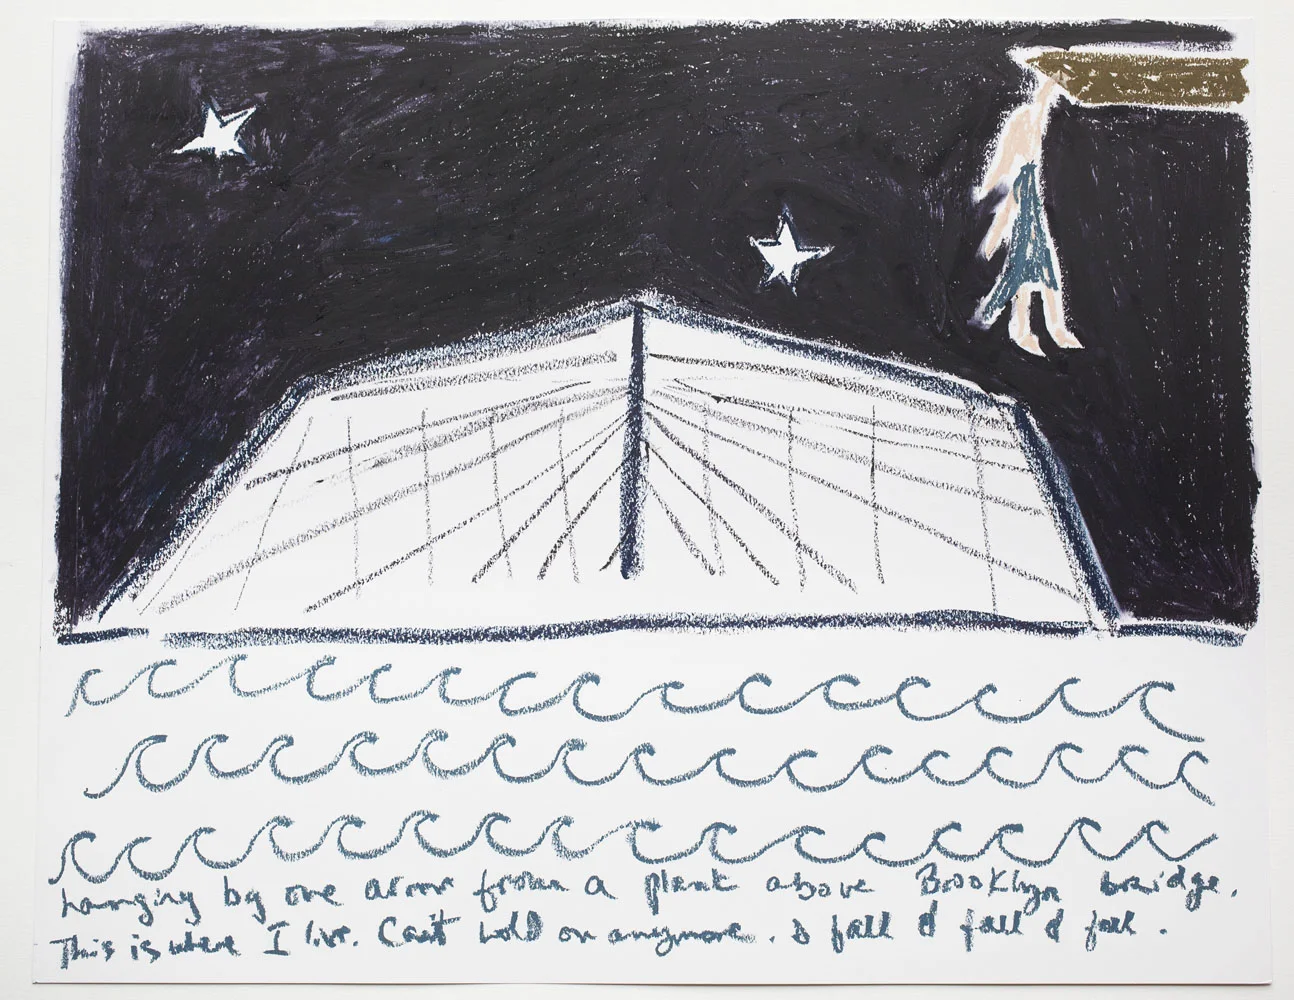 hanging by one arm from a plank above Brooklyn bridge.
This is where I live. Can't hold on anymore. I fall & fall & fall.